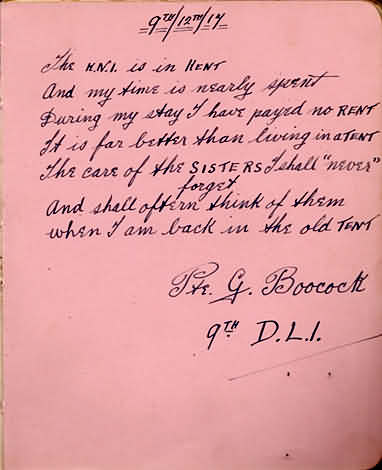 9TH/12TH/17
The K.N.I. is in KENT
And my time is nearly spent
During my stay I have payed no RENT
It is far better than living in a TENT
The care of the SISTERS I shall "never"
forget
And shall oftern think of them
when I am back in the old TENT
Pte. G. Boocock
9TH D.L.I.